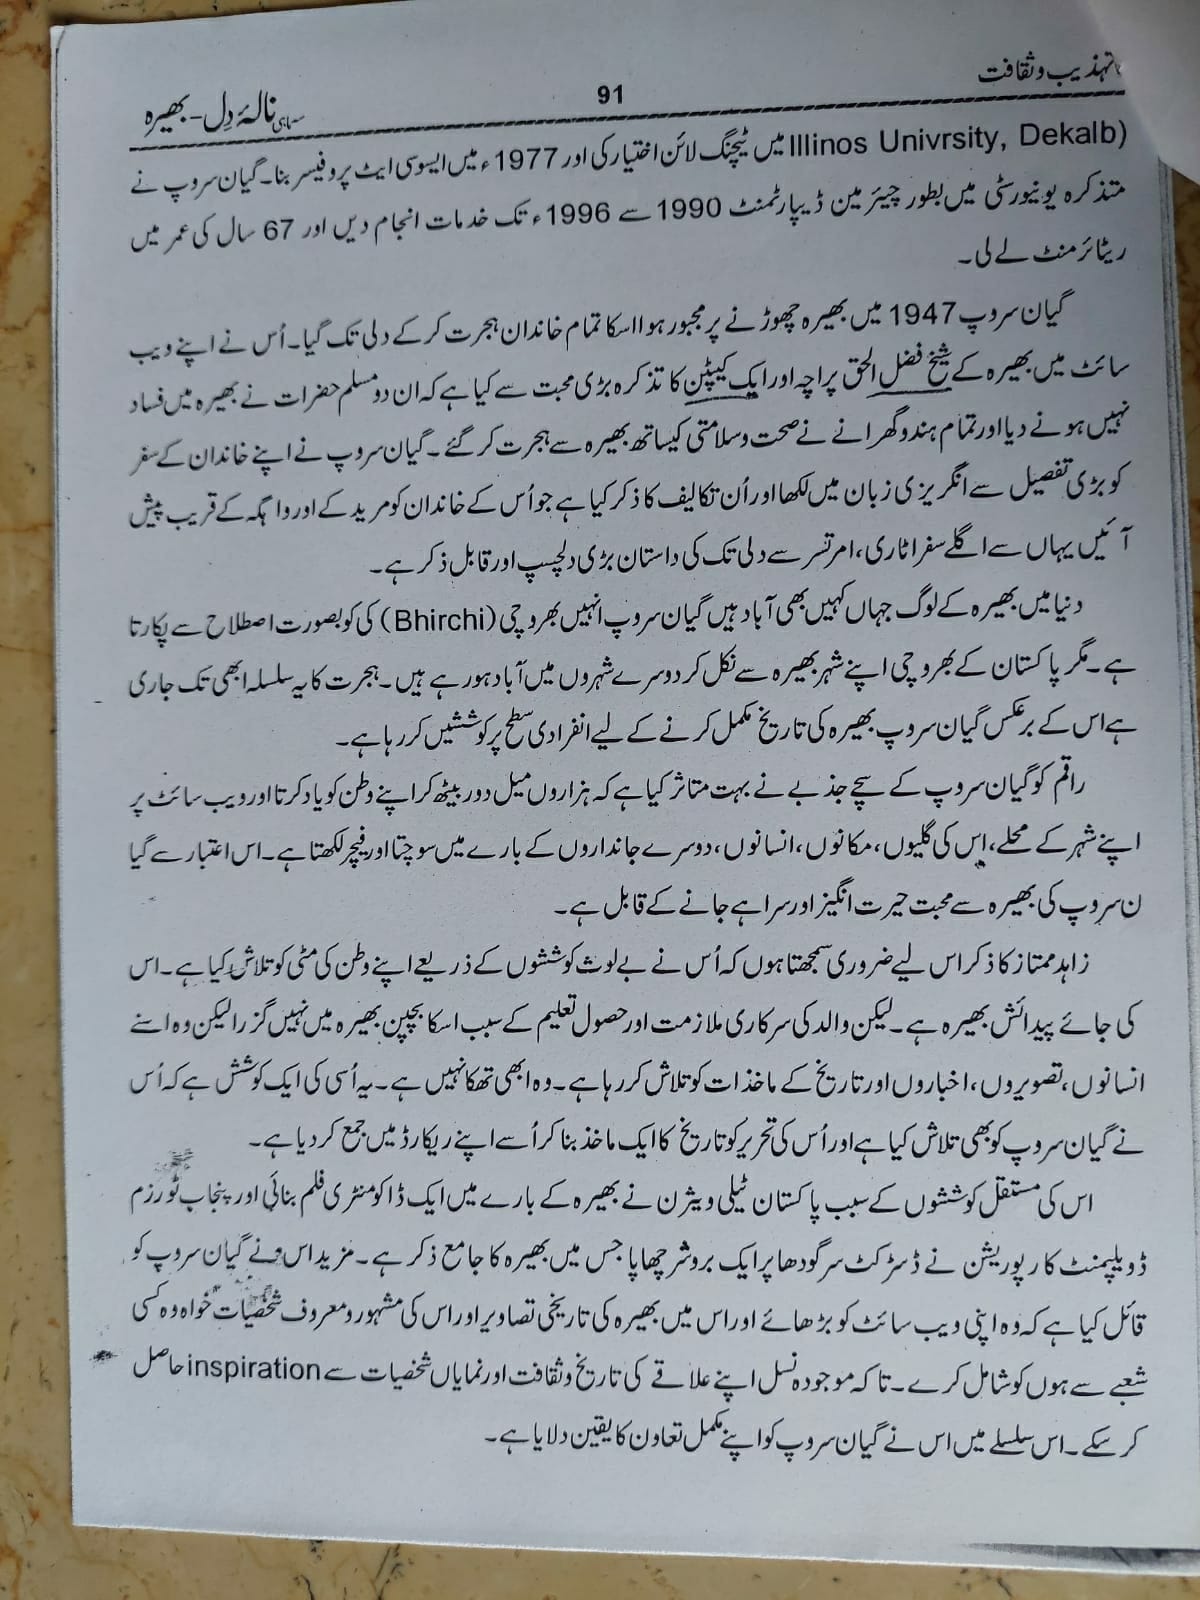 تہذیب و ثقافت
91
سہ ماہی نالۂ دِل - بھیرہ
Illinos Univrsity, Dekalb) میں ٹیچنگ لائن اختیار کی اور 1977ء میں ایسوسی ایٹ پروفیسر بنا۔ گیان سروپ نے
متذکرہ یونیورسٹی میں بطور چیئرمین ڈیپارٹمنٹ 1990 سے 1996ء تک خدمات انجام دیں اور 67 سال کی عمر میں
ریٹائرمنٹ لے لی۔
گیان سروپ 1947 میں بھیرہ چھوڑنے پر مجبور ہوا اسکا تمام خاندان ہجرت کر کے دلی تک گیا۔ اُس نے اپنے ویب
سائٹ میں بھیرہ کے شیخ فضل الحق پراچہ اور ایک کیپٹن کا تذکرہ بڑی محبت سے کیا ہے کہ ان دو مسلم حضرات نے بھیرہ میں فساد
نہیں ہونے دیا اور تمام ہندو گھرانے نے صحت و سلامتی کیساتھ بھیرہ سے ہجرت کر گئے۔ گیان سروپ نے اپنے خاندان کے سفر
کو بڑی تفصیل سے انگریزی زبان میں لکھا اور اُن تکالیف کا ذکر کیا ہے جو اُس کے خاندان کو مریدکے اور واہگہ کے قریب پیش
آئیں یہاں سے اگلے سفر اٹاری، امرتسر سے دلی تک کی داستان بڑی دلچسپ اور قابل ذکر ہے۔
دنیا میں بھیرہ کے لوگ جہاں کہیں بھی آباد ہیں گیان سروپ انہیں بھروچی (Bhirchi) کی کوبصورت اصطلاح سے پکارتا
ہے۔ مگر پاکستان کے بھروچی اپنے شہر بھیرہ سے نکل کر دوسرے شہروں میں آباد ہو رہے ہیں۔ ہجرت کا یہ سلسلہ ابھی تک جاری
ہے اس کے برعکس گیان سروپ بھیرہ کی تاریخ مکمل کرنے کے لیے انفرادی سطح پر کوششیں کر رہا ہے۔
راقم کو گیان سروپ کے سچے جذبے نے بہت متاثر کیا ہے کہ ہزاروں میل دور بیٹھ کر اپنے وطن کو یاد کرتا اور ویب سائٹ پر
اپنے شہر کے محلے، اس کی گلیوں، مکانوں، انسانوں، دوسرے جانداروں کے بارے میں سوچتا اور فیچر لکھتا ہے۔ اس اعتبار سے گیا
ن سروپ کی بھیرہ سے محبت حیرت انگیز اور سراہے جانے کے قابل ہے۔
زاہد ممتاز کا ذکر اس لیے ضروری سمجھتا ہوں کہ اُس نے بے لوث کوششوں کے ذریعے اپنے وطن کی مٹی کو تلاش کیا ہے۔ اس
کی جائے پیدائش بھیرہ ہے۔ لیکن والد کی سرکاری ملازمت اور حصول تعلیم کے سبب اسکا بچپن بھیرہ میں نہیں گزرا لیکن وہ اسنے
انسانوں، تصویروں، اخباروں اور تاریخ کے ماخذات کو تلاش کر رہا ہے۔ وہ ابھی تھکا نہیں ہے۔ یہ اُسی کی ایک کوشش ہے کہ اُس
نے گیان سروپ کو بھی تلاش کیا ہے اور اُس کی تحریر کو تاریخ کا ایک ماخذ بنا کر اُسے اپنے ریکارڈ میں جمع کر دیا ہے۔
اس کی مستقل کوششوں کے سبب پاکستان ٹیلی ویژن نے بھیرہ کے بارے میں ایک ڈاکومنٹری فلم بنائی اور پنجاب ٹورزم
ڈویلپمنٹ کارپوریشن نے ڈسٹرکٹ سرگودھا پر ایک بروشر چھاپا جس میں بھیرہ کا جامع ذکر ہے۔ مزید اس نے گیان سروپ کو
قائل کیا ہے کہ وہ اپنی ویب سائٹ کو بڑھائے اور اس میں بھیرہ کی تاریخی تصاویر اور اس کی مشہور و معروف شخصیات خواہ وہ کسی
شعبے سے ہوں کو شامل کرے۔ تاکہ موجودہ نسل اپنے علاقے کی تاریخ و ثقافت اور نمایاں شخصیات سے inspiration حاصل
کر سکے۔ اس سلسلے میں اس نے گیان سروپ کو اپنے مکمل تعاون کا یقین دلایا ہے۔